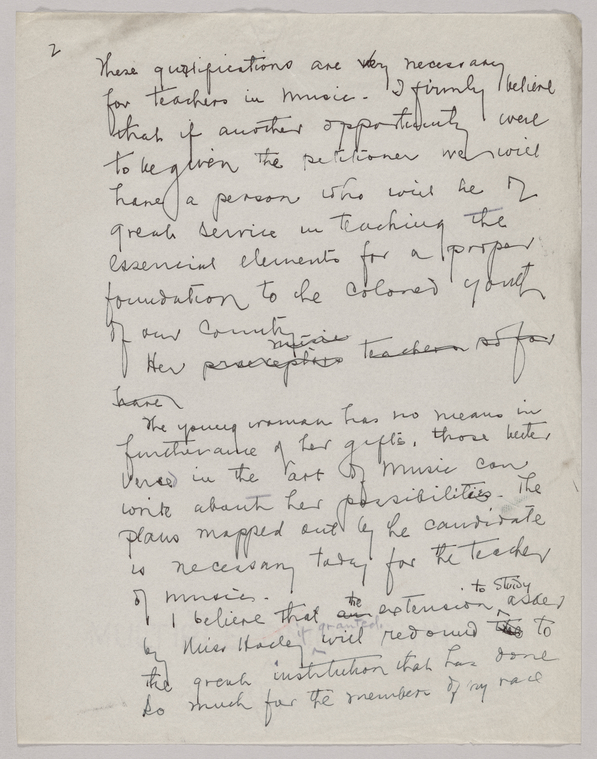 2
These qualifications are very necessary
for teachers in music. I firmly believe
that if another opportunity were
to be given the petitioner we will
have a person who will be of
great service in teaching the
essencial elements for a proper
foundation to the colored youth
of our County
music
Her preceptors teachers so far
have
The young woman has no means in
furtherance of her gifts, those better
versed in the art of music can
write about her possibilities. The
plans mapped out by the candidate
is necessary today for the teacher
of music.
the to study
I believe that an extension, asked
if granted
by Miss will redound to
the great institution that has done
so much for the members of my race